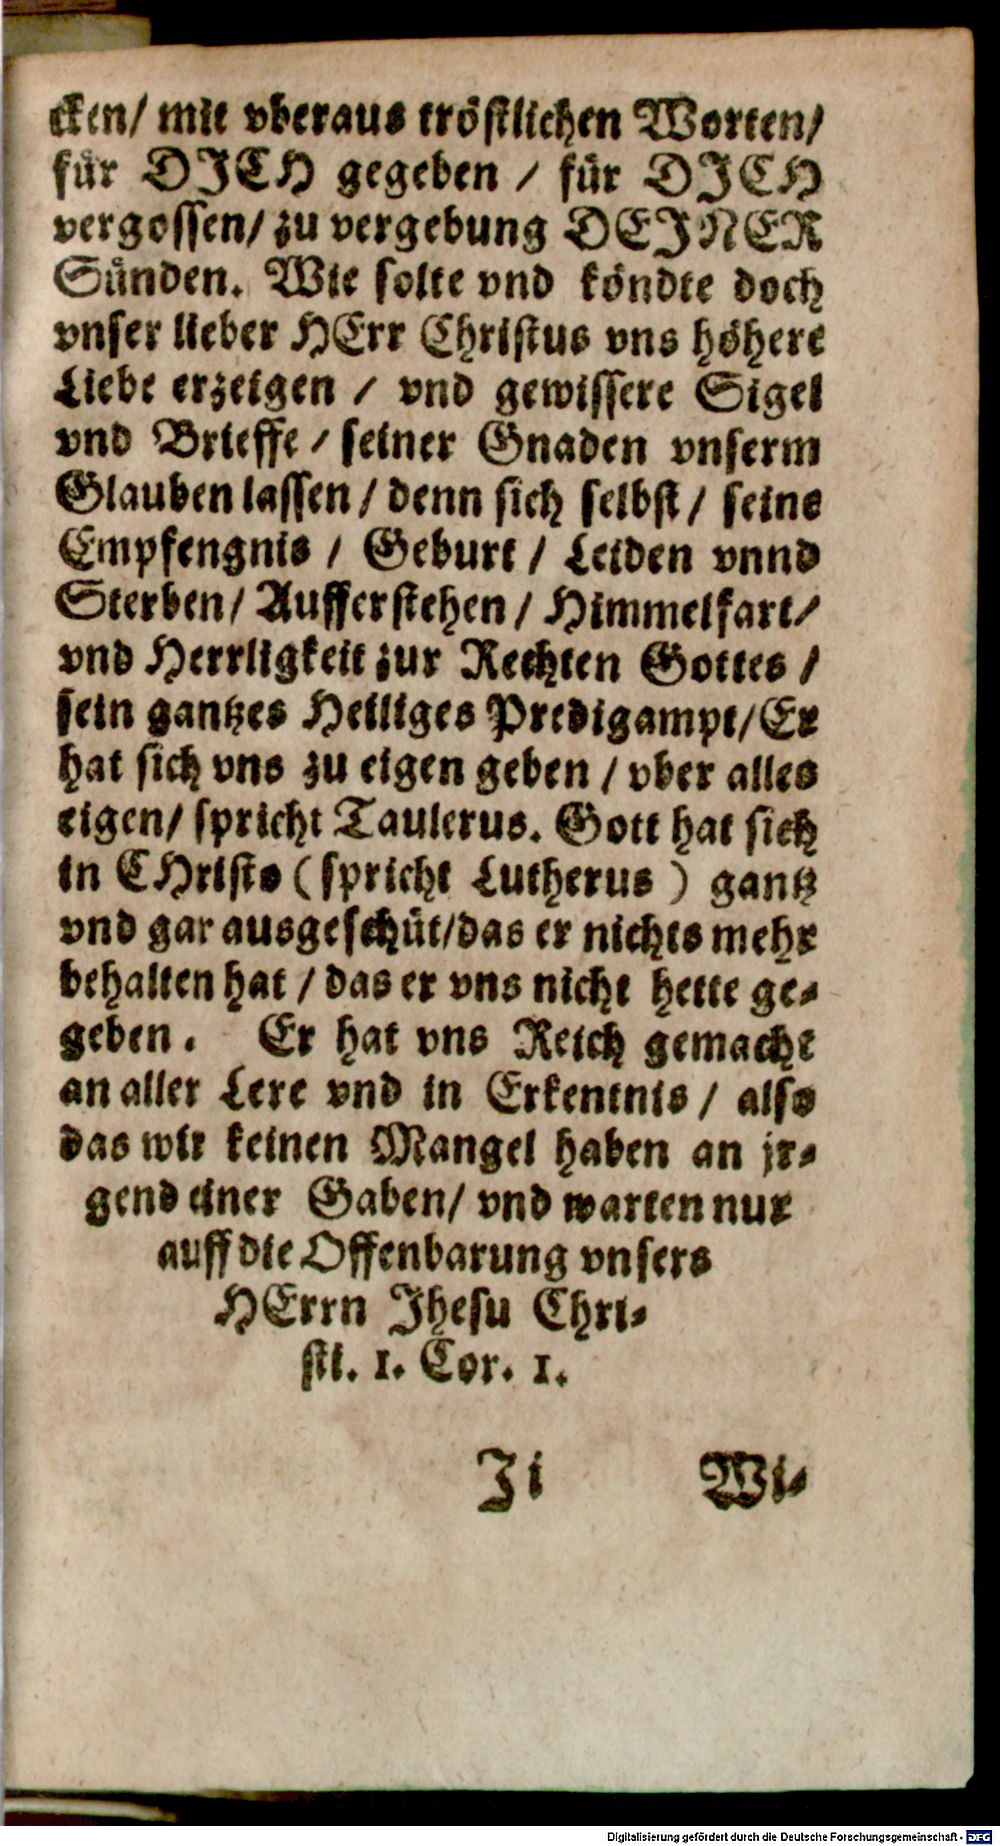 cken/ mit vberaus tröstlichen Worten/
für DJCH gegeben / für DJCH
vergossen/ zu vergebung DEJNER
Sünden. Wie solte vnd köndte doch
vnser lieber HErr Christus vns höhere
Liebe erzeigen / vnd gewissere Sigel
vnd Brieffe / seiner Gnaden vnserm
Glauben lassen / denn sich selbst / seine
Empfengnis / Geburt / Leiden vnnd
Sterben/ Aufferstehen / Himmelfart/
vnd Herrligkeit zur Rechten Gottes /
sein gantzes Heiliges Predigampt/ Er
hat sich vns zu eigen geben / vber alles
eigen/ spricht Taulerus. Gott hat sich
in CHristo ( spricht Lutherus ) gantz
vnd gar ausgeschüt/das er nichts mehr
behalten hat / das er vns nicht hette ge-
geben. Er hat vns Reich gemacht
an aller Lere vnd in Erkentnis / also
das wir keinen Mangel haben an jr-
gend einer Gaben/ vnd warten nur
auff die Offenbarung vnsers
HErrn Jhesu Chri-
sti. 1. Cor. 1.
Ji Wi-
Digitalisierung gefördert durch die Deutsche Forschungsgemeinschaft - DFG